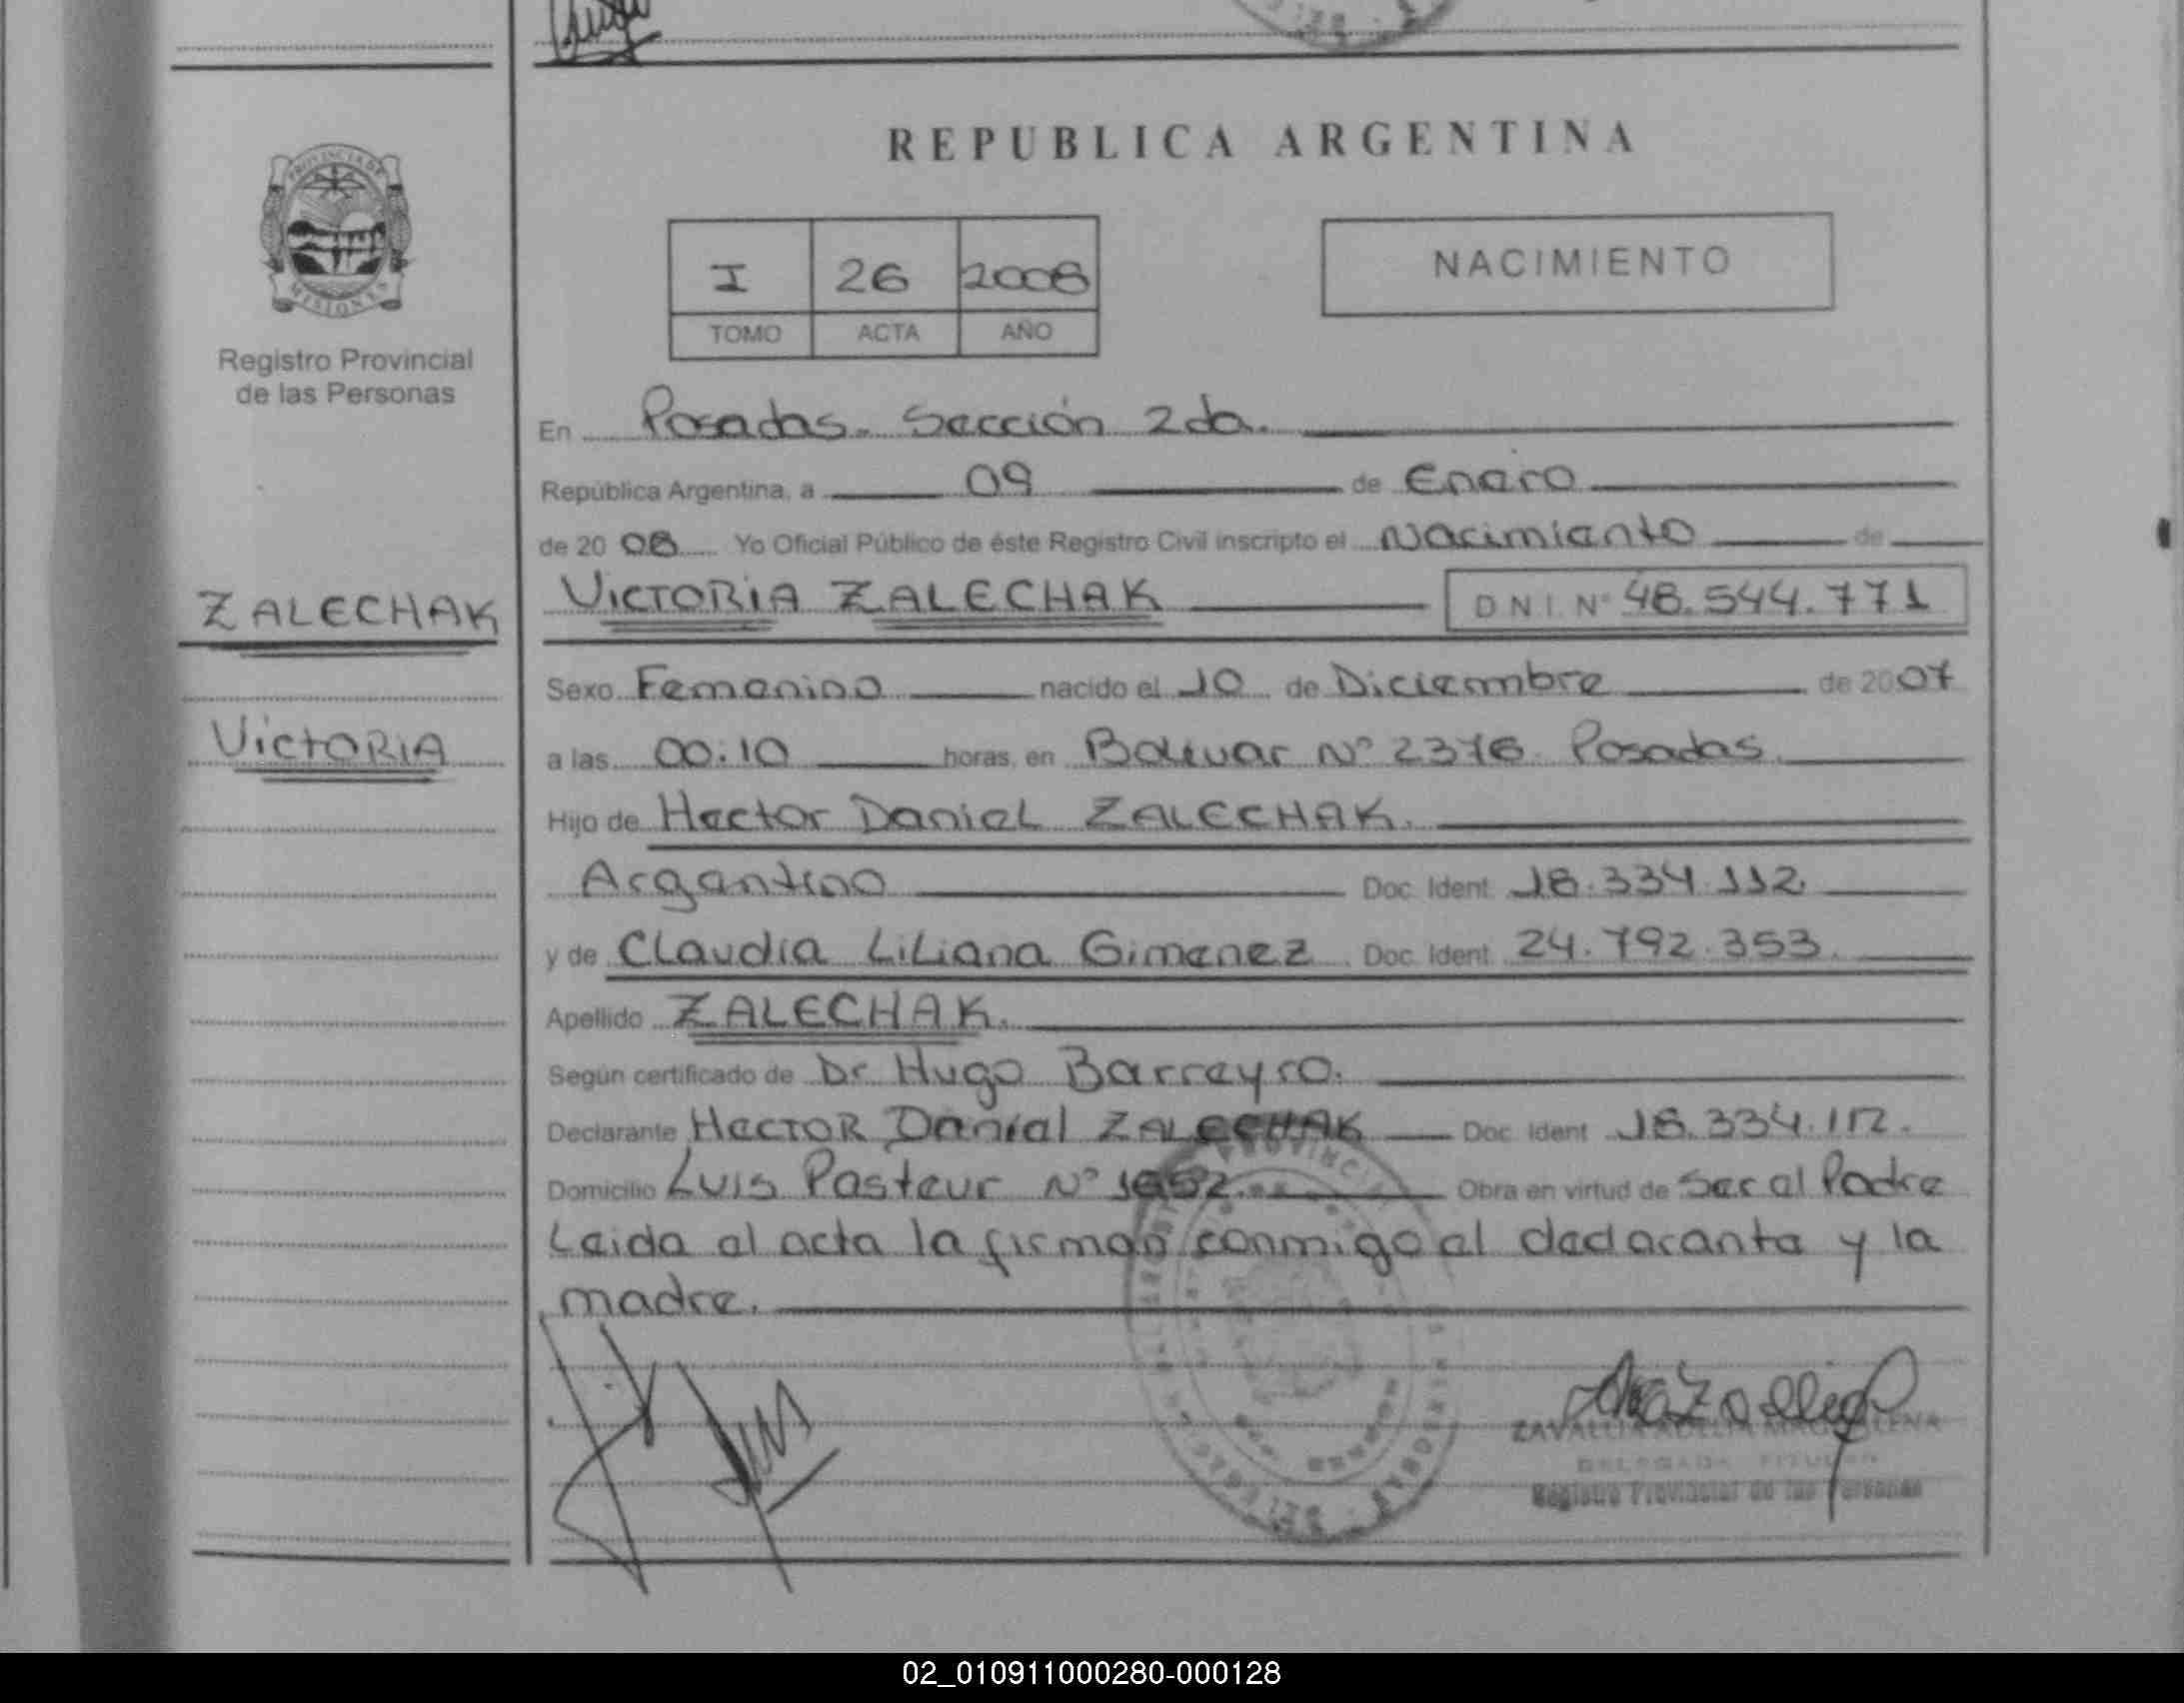 REPUBLICA ARGENTINA
PROVINCIA DE
MISIONES
Registro Provincial
de las Personas
I 26 2008
TOMO ACTA AÑO
NACIMIENTO
En Posadas. Sección 2da.
República Argentina, a 09 de Enero
de 20 08 Yo Oficial Público de éste Registro Civil inscripto el Nacimiento de
ZALECHAK
VICTORIA ZALECHAK D N I. N° 48.544.771
Sexo Femenino nacido el 10 de Diciembre de 2007
Victoria
a las 00:10 horas, en Bolivar N° 2376 Posadas.
Hijo de Hector Daniel ZALECHAK.
Argentino Doc. Ident. 18.334.112.
y de Claudia Liliana Gimenez Doc. Ident. 24.792.353.
Apellido ZALECHAK.
Según certificado de Dr Hugo Barreyro.
Declarante Hector Daniel ZALECHAK Doc. Ident. 18.334.112.
Domicilio Luis Pasteur N° Obra en virtud de Ser el Padre
Leida el acta la firman conmigo el declarante y la
madre.
Registro Provincial de las Personas
02_010911000280-000128